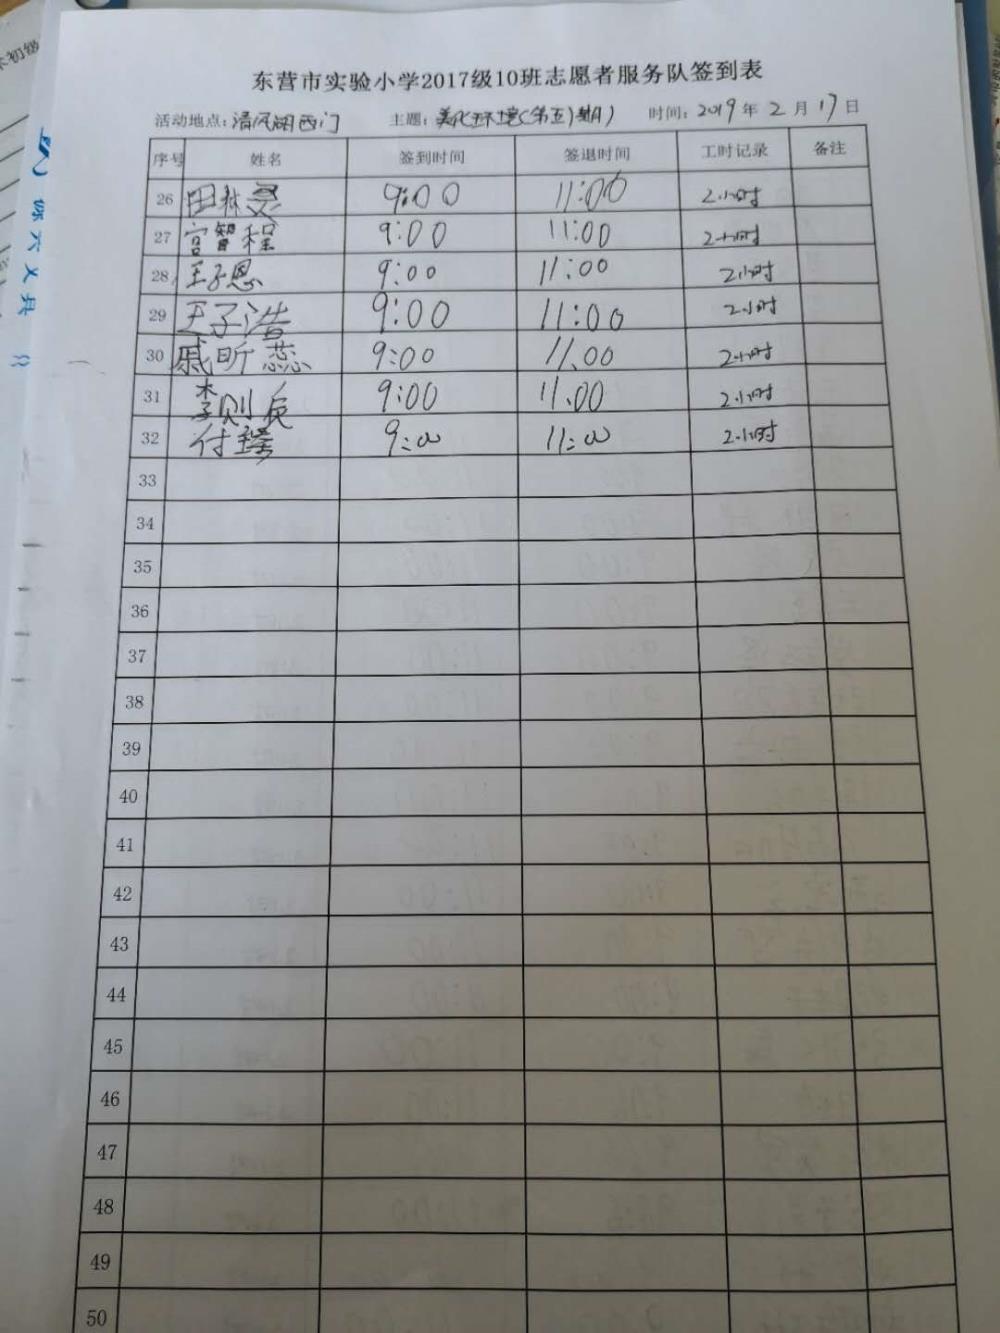 东营市实验小学2017级10班志愿者服务队签到表
活动地点：清风湖西门 主题：美化环境（第五期） 时间：2019年2月17日
序号 姓名 签到时间 签退时间 工时记录 备注
26 田林灵 9:00 11:00 2小时
27 宫智程 9:00 11:00 2小时
28 王子恩 9:00 11:00 2小时
29 王子浩 9:00 11:00 2小时
30 戚昕蕊 9:00 11:00 2小时
31 李则辰 9:00 11:00 2小时
32 付 9:00 11:00 2小时
33
34
35
36
37
38
39
40
41
42
43
44
45
46
47
48
49
50